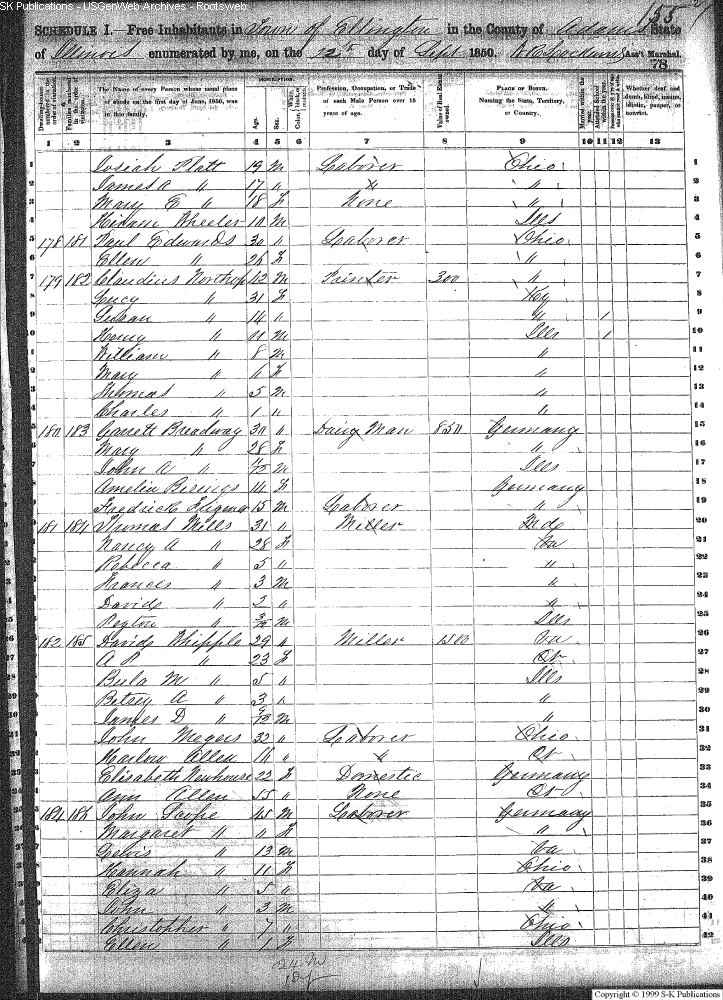 SK Publications - USGenWeb Archives - Rootsweb
155
SCHEDULE I.—Free Inhabitants in Town of Ellington in the County of Adams State
of Illinois enumerated by me, on the 12th day of Sept 1850. Ass't Marshal.
78
DESCRIPTION.
Dwelling-houses numbered in the order of visitation.
Families numbered in the order of visitation.
The Name of every Person whose usual place of abode on the first day of June, 1850, was in this family.
Age. Sex. White, black, or mulatto. Color,
Profession, Occupation, or Trade of each Male Person over 15 years of age.
Value of Real Estate owned.
PLACE OF BIRTH. Naming the State, Territory, or Country.
Married within the year. Attended School within the year.
Whether deaf and dumb, blind, insane, idiotic, pauper, or convict.
1 2 3 4 5 6 7 8 9 10 11 12 13
1 Josiah Platt 19 M Laborer Ohio 1
2 James A " 17 " " " 2
3 Mary E " 18 F None " 3
4 Wheeler 10 M Ills 4
5 178 181 Paul Edwards 30 " Laborer Ohio 5
6 Ellen " 26 F " 6
7 179 182 Claudius Northop 42 M Painter 300 " 7
8 Lucy " 31 F Ky 8
9 Susan " 14 " " 1 9
10 Henry " 11 M Ills 1 10
11 William " 8 M " 11
12 Mary " 6 F " 12
13 Thomas " 5 M " 13
14 Charles " 1 " " 14
15 180 183 Garrett Broadway 30 " Man 850 Germany 15
16 Mary " 28 F " 16
17 John A " M Ills 17
18 Amelia 14 F Germany 18
19 Fredrick 15 M Laborer " 19
20 181 184 Thomas Mills 31 " Miller Md 20
21 Nancy A " 28 F Va 21
22 Rebecca " 5 " " 22
23 Francis " 3 M " 23
24 David " 2 " " 24
25 Peyton " M Ills 25
26 182 185 David Whipple 29 " Miller 1500 Va 26
27 A P " 23 F Ct 27
28 Bula M " 5 " Ills 28
29 Betsey A " 3 " " 29
30 James D " M " 30
31 John Meyers 32 " Laborer Ohio 31
32 Harlow Allen 16 " " Ct 32
33 Elisabeth Newhouse 22 F Domestic Germany 33
34 Ann Allen 55 " None Ct 34
35 184 186 John Scope 45 M Laborer Germany 35
36 Margaret " " F " 36
37 Lewis " 13 M Va 37
38 Hannah " 11 F Ohio 38
39 Eliza " 5 " Va 39
40 John " 3 M " 40
41 Christopher " 7 " Ohio 41
42 Ellen " 1 F Ills 42
Copyright © 1999 S-K Publications